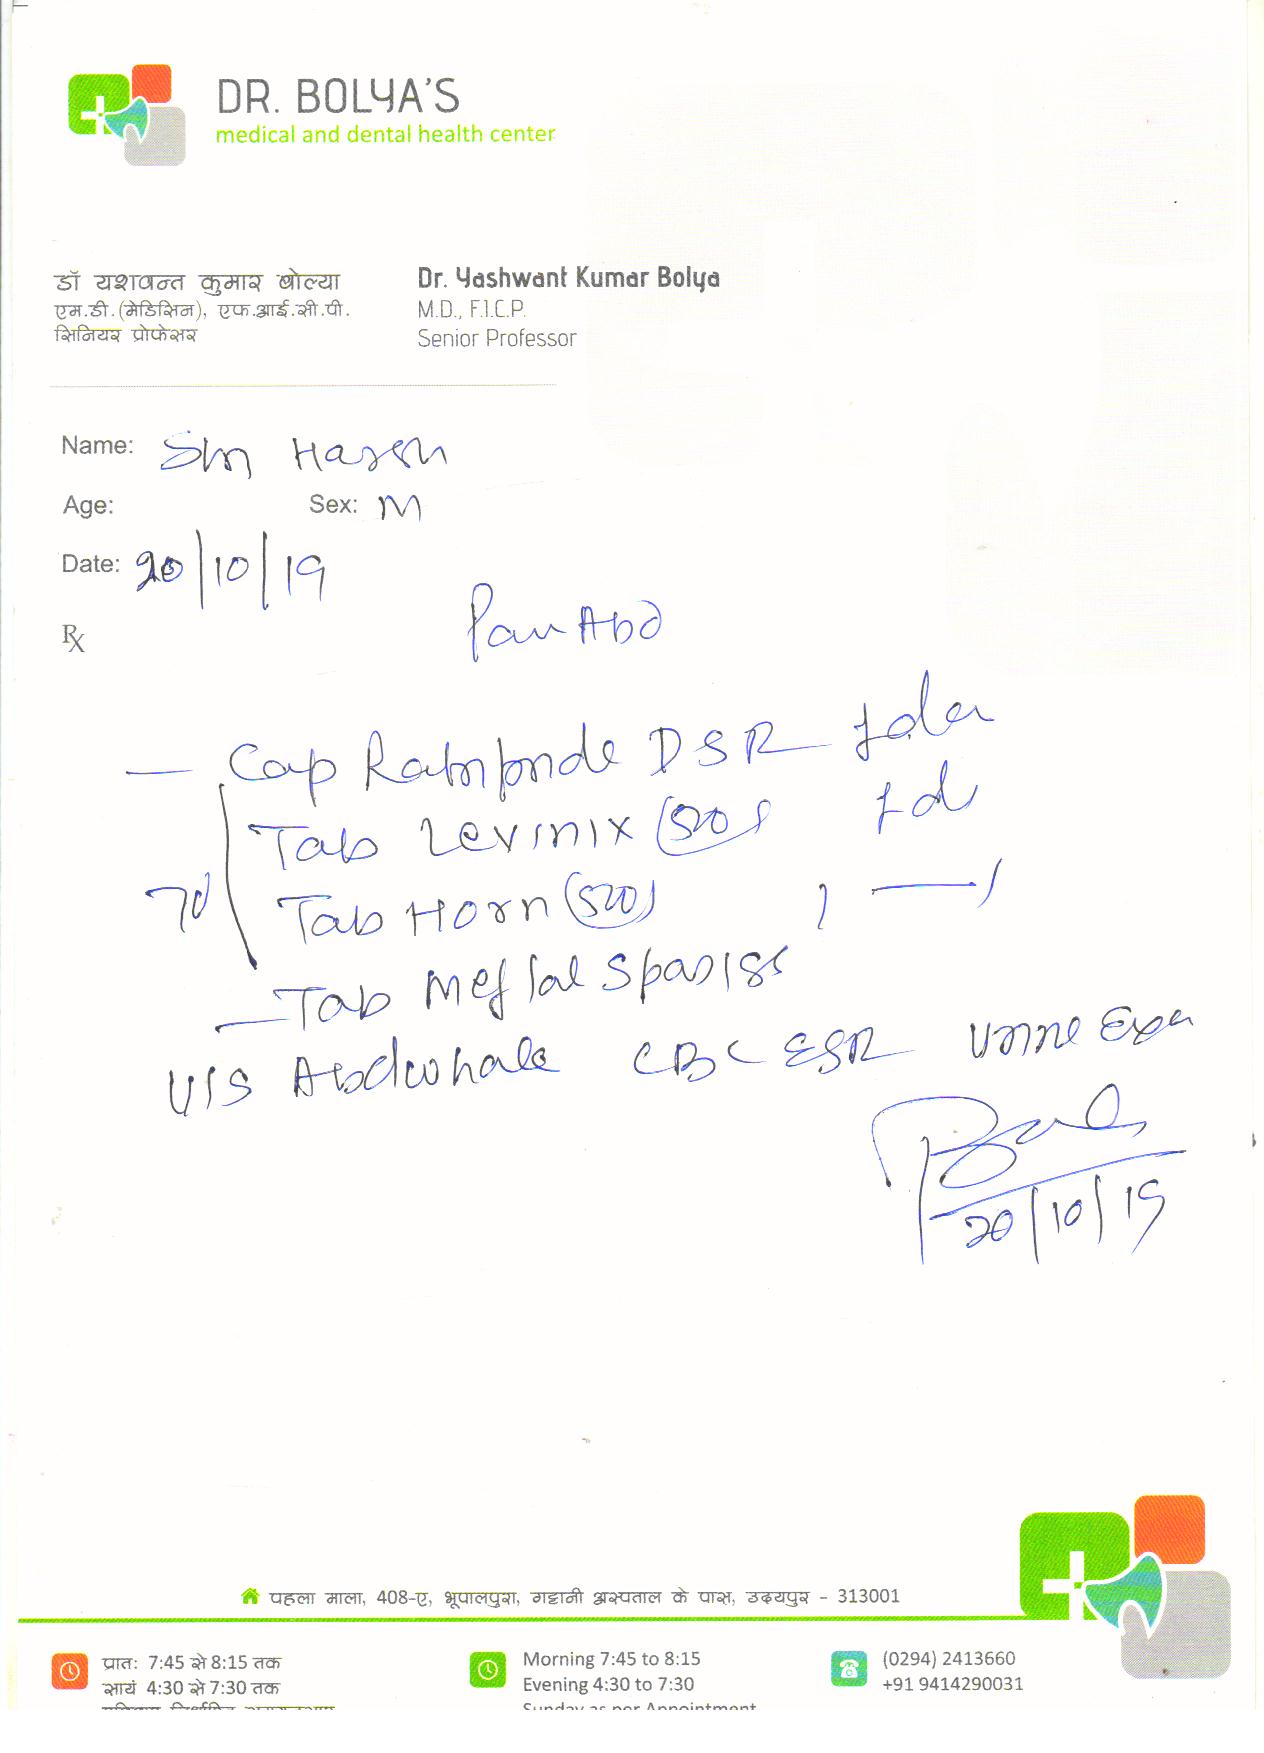 DR. BOLYA'S
medical and dental health center
डॉ यशवन्त कुमार बोल्या
एम.डी.(मेडिसिन), एफ.आई.सी.पी.
सिनियर प्रोफेसर
Dr. Yashwant Kumar Bolya
M.D., F.I.C.P.
Senior Professor
Name:
Age: Sex: M
Date: 20/10/19
Rx
Pain Abd
Cap DSR
Tab Levinix (500)
7d
Tab Horn (500)
Tab Meftal Spas
U/S Abd whole CBC ESR Urine Exam
20/10/19
पहला माला, 408-ए, भूपालपुरा, गट्टानी अस्पताल के पास, उदयपुर - 313001
प्रात: 7:45 से 8:15 तक
सायं 4:30 से 7:30 तक
Morning 7:45 to 8:15
Evening 4:30 to 7:30
Sunday as per Appointment
(0294) 2413660
+91 9414290031